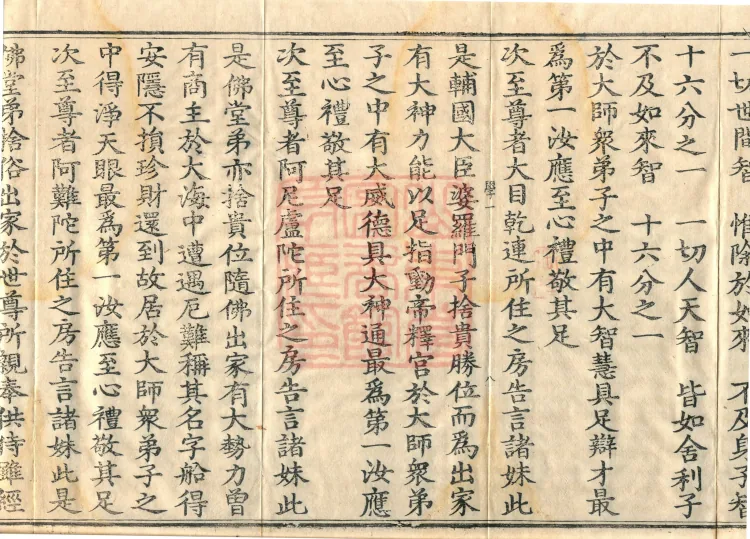 一切世間智　惟除於如來　不及身子智
十六分之一　一切人天智　皆如舍利子
不及如來智　十六分之一
於大師衆弟子之中有大智慧具足辯才最
爲第一汝應至心禮敬其足
次至尊者大目乾連所住之房告言諸妹此
是輔國大臣婆羅門子捨貴勝位而爲出家
有大神力能以足指動帝釋宮於大師衆弟
子之中有大威德具大神通最爲第一汝應
至心禮敬其足
次至尊者阿尼盧陀所住之房告言諸妹此
是佛堂弟亦捨貴位隨佛出家有大勢力曾
有商主於大海中遭遇厄難稱其名字船得
安隱不損珍財還到故居於大師衆弟子之
中得淨天眼最爲第一汝應至心禮敬其足
次至尊者阿難陀所住之房告言諸妹此是
佛堂弟捨俗出家於世尊所親奉供侍雖經